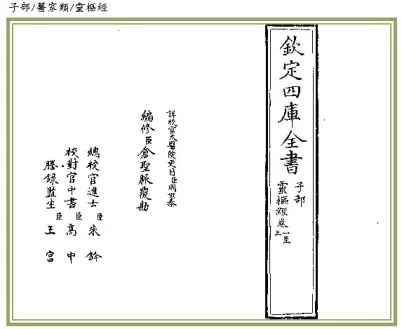 子部/醫家類/靈樞經
欽定四庫全書
子部
靈樞經卷一至
詳校官太醫院吏目臣
編修臣倉聖脈覆勘
總校官進士臣朱鈐
校對官中書臣高中
謄錄監生臣王宮